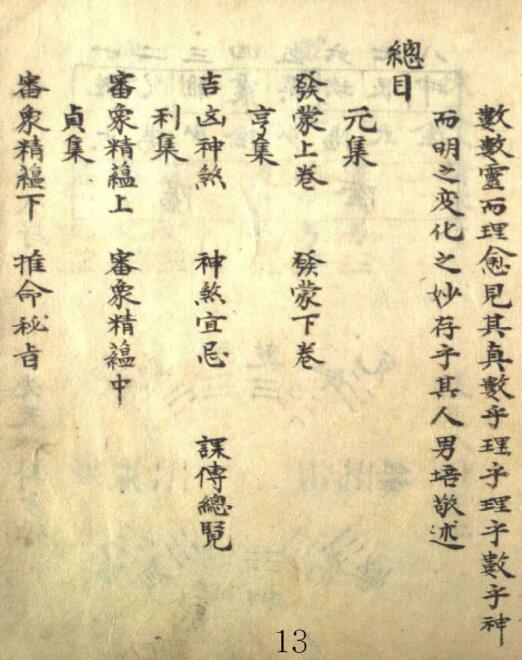 數數靈而理愈見其真數乎理乎理乎數乎神
而明之変化之妙存乎其人男培敬述
總目
元集
發蒙上巻 發蒙下巻
亨集
吉凶神煞 神煞宜忌 課傳總覽
利集
審象精蘊上 審象精蘊中
貞集
審象精蘊下 推命秘旨
13